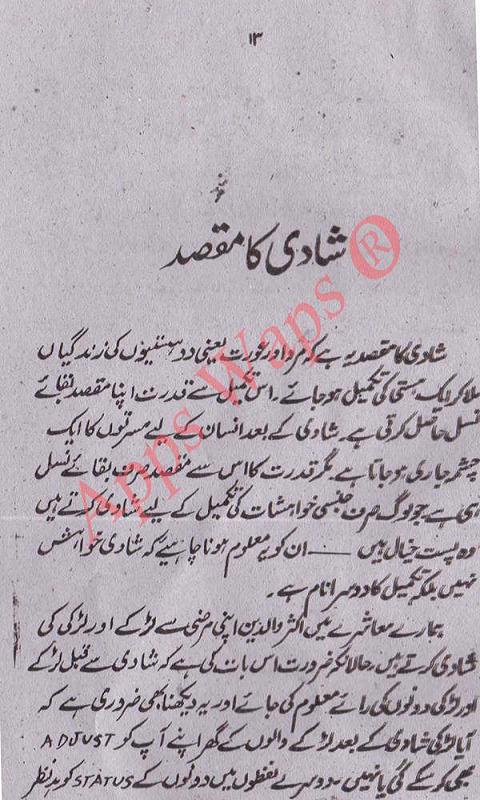 ۱۳
شادی کا مقصد
شادی کا مقصد یہ ہے کہ مرد اور عورت یعنی دو ہستیوں کی زندگیاں
ملا کر ایک ہستی کی تکمیل ہو جائے۔ اس تکمیل سے قدرت اپنا مقصد بقائے
نسل حاصل کرتی ہے۔ شادی کے بعد انسان کے لیے مسرتوں کا ایک
چشمہ جاری ہو جاتا ہے۔ مگر قدرت کا اس سے مقصد صرف بقائے نسل
ہی ہے جو لوگ صرف جنسی خواہشات کی تکمیل کے لیے شادی کرتے ہیں
وہ پست خیال ہیں — ان کو یہ معلوم ہونا چاہیے کہ شادی خواہش
نہیں بلکہ تکمیل کا دوسرا نام ہے۔
ہمارے معاشرے میں اکثر والدین اپنی مرضی سے لڑکے اور لڑکی کی
شادی کرتے ہیں، حالانکہ ضرورت اس بات کی ہے کہ شادی سے قبل لڑکے
اور لڑکی دونوں کی رائے معلوم کی جائے اور یہ دیکھنا بھی ضروری ہے کہ
آیا لڑکی شادی کے بعد لڑکے والوں کے گھر اپنے آپ کو ADJUST
بھی کر سکے گی یا نہیں۔ دوسرے لفظوں میں دونوں کے STATUS کو مدِنظر
Apps Waps ®